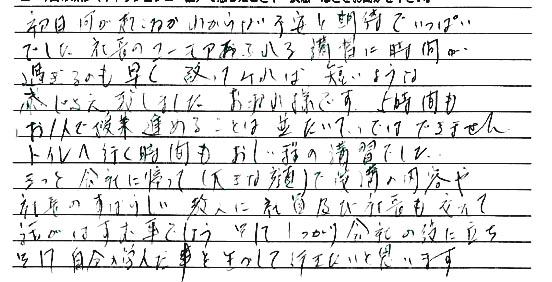 初日 何が起こるかわからない不安と期待でいっぱい
でした 社長のユーモアあふれる講習に時間が
過ぎるのも早く 改げみれば 短いような
感じさえ致しました おつかれ様です 5時間も
お1人で授業進めることは並たいていではできません
トイレへ行く時間もおしい程の講習でした
きっと会社に帰って(大きな顔)で受講の内容や
社長のすばらしい 故人に社員及び社長も交えて
話がはずむ事でしょう そして しっかり会社の役に立ち
そして 自分の学んだ事を生かして行きたいと思います